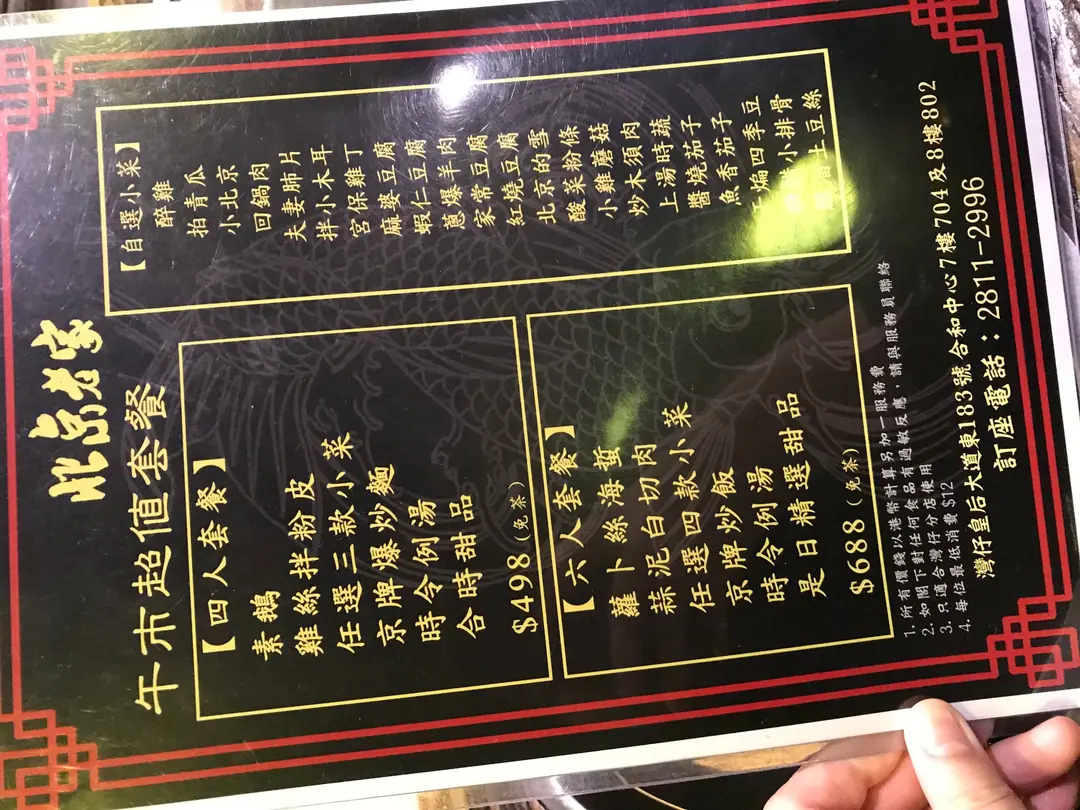 北京老家
午市超值套餐
【四人套餐】
素鵝
雞絲拌粉皮
任選三款小菜
京牌爆炒麵
時令例湯
合時甜品
$498(免茶)
【六人套餐】
蘿卜絲海蜇
蒜泥白切肉
任選四款小菜
京牌炒飯
時令例湯
是日精選甜品
$688(免茶)
【自選小菜】
醉雞
拍青瓜
小北京
回鍋肉
夫妻肺片
拌小木耳
宮保雞丁
麻婆豆腐
蝦仁豆腐
蔥爆羊肉
家常豆腐
紅燒豆腐
北京的雪
酸菜粉條
小雞蘑菇
炒木須肉
上湯時蔬
醬燒茄子
魚香茄子
煸四季豆
小排骨
土豆絲
1. 所有價錢以港幣計算另加一服務費
2. 如閣下對任何食品有過敏反應，請與服務員聯絡
3. 只適合灣仔分店使用
4. 每位最低消費 $12
灣仔皇后大道東183號合和中心7樓704及8樓802
訂座電話：2811-2996